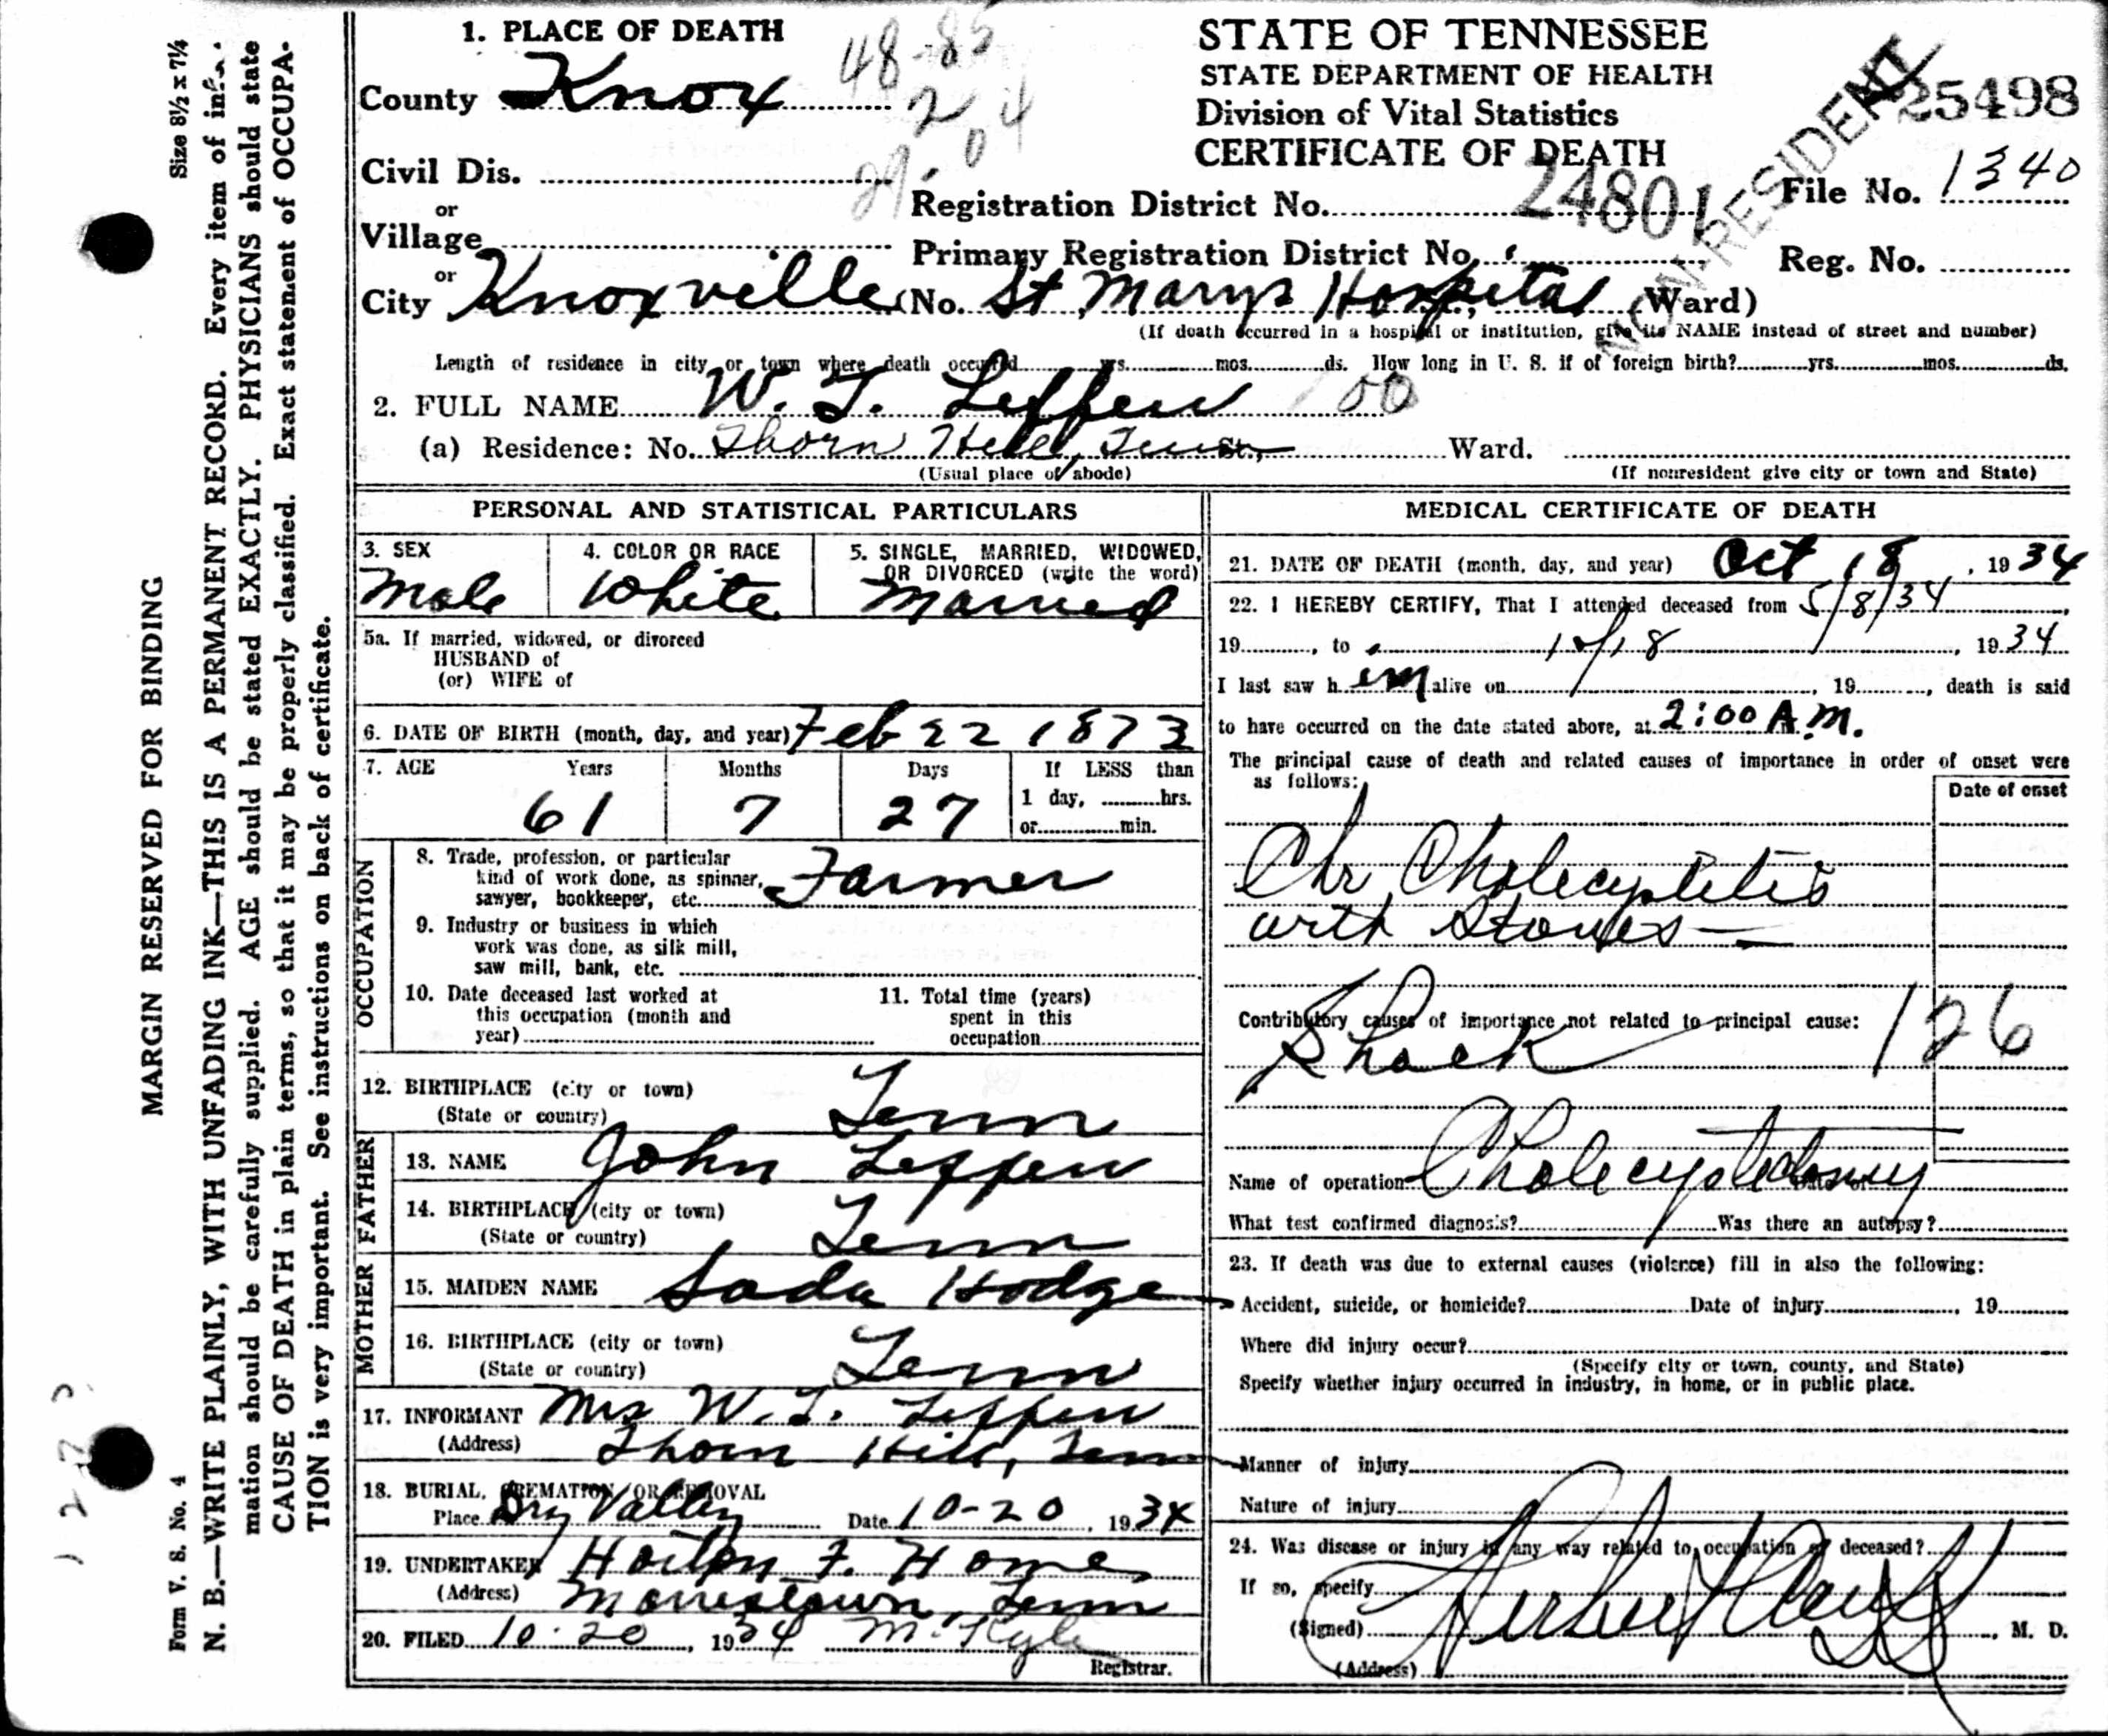 Size 8½ x 7¼
MARGIN RESERVED FOR BINDING
Form V. S. No. 4
N. B.—WRITE PLAINLY, WITH UNFADING INK—THIS IS A PERMANENT RECORD. Every item of infor-
mation should be carefully supplied. AGE should be stated EXACTLY. PHYSICIANS should state
CAUSE OF DEATH in plain terms, so that it may be properly classified. Exact statement of OCCUPA-
TION is very important. See instructions on back of certificate.
1. PLACE OF DEATH
County Knox
48-85
2
29-04
Civil Dis.
or
Village
or
City Knoxville (No. St Marys Hospital St., Ward)
(If death occurred in a hospital or institution, give its NAME instead of street and number)
STATE OF TENNESSEE
STATE DEPARTMENT OF HEALTH
Division of Vital Statistics
CERTIFICATE OF DEATH
NON-RESIDENT
25498
Registration District No. 24801
File No. 1340
Primary Registration District No.
Reg. No.
Length of residence in city or town where death occurred yrs. mos. ds. How long in U. S. if of foreign birth? yrs. mos. ds.
2. FULL NAME W. T. Leffew 00
(a) Residence: No. Thorn Hill, Tenn St., Ward.
(Usual place of abode) (If nonresident give city or town and State)
PERSONAL AND STATISTICAL PARTICULARS
3. SEX Male
4. COLOR OR RACE White
5. SINGLE, MARRIED, WIDOWED, OR DIVORCED (write the word) Married
5a. If married, widowed, or divorced
HUSBAND of
(or) WIFE of
6. DATE OF BIRTH (month, day, and year) Feb 22 1873
7. AGE Years Months Days If LESS than
61 7 27 1 day, hrs.
or min.
OCCUPATION
8. Trade, profession, or particular
kind of work done, as spinner,
sawyer, bookkeeper, etc. Farmer
9. Industry or business in which
work was done, as silk mill,
saw mill, bank, etc.
10. Date deceased last worked at
this occupation (month and
year)
11. Total time (years)
spent in this
occupation
12. BIRTHPLACE (city or town)
(State or country) Tenn
FATHER
13. NAME John Leffew
14. BIRTHPLACE (city or town)
(State or country) Tenn
MOTHER
15. MAIDEN NAME Sada Hodge
16. BIRTHPLACE (city or town)
(State or country) Tenn
17. INFORMANT Mrs W. T. Leffew
(Address) Thorn Hill, Tenn
18. BURIAL, CREMATION OR REMOVAL
Place Dry Valley Date 10-20, 1934
19. UNDERTAKER F. Home
(Address) Morristown, Tenn
20. FILED 10-20, 1934 Kyle
Registrar.
MEDICAL CERTIFICATE OF DEATH
21. DATE OF DEATH (month, day, and year) Oct 18, 1934
22. I HEREBY CERTIFY, That I attended deceased from 5/8/34,
19, to 10/18, 1934
I last saw him alive on, 19, death is said
to have occurred on the date stated above, at 2:00 A.M.
The principal cause of death and related causes of importance in order of onset were
as follows:
Date of onset
Chr Cholecystitis
with Stones
Contributory causes of importance not related to principal cause:
Shock
126
Name of operation Cholecystectomy
What test confirmed diagnosis? Was there an autopsy?
23. If death was due to external causes (violence) fill in also the following:
Accident, suicide, or homicide? Date of injury, 19
Where did injury occur?
(Specify city or town, county, and State)
Specify whether injury occurred in industry, in home, or in public place.
Manner of injury
Nature of injury
24. Was disease or injury in any way related to occupation of deceased?
If so, specify
(Signed), M. D.
(Address)